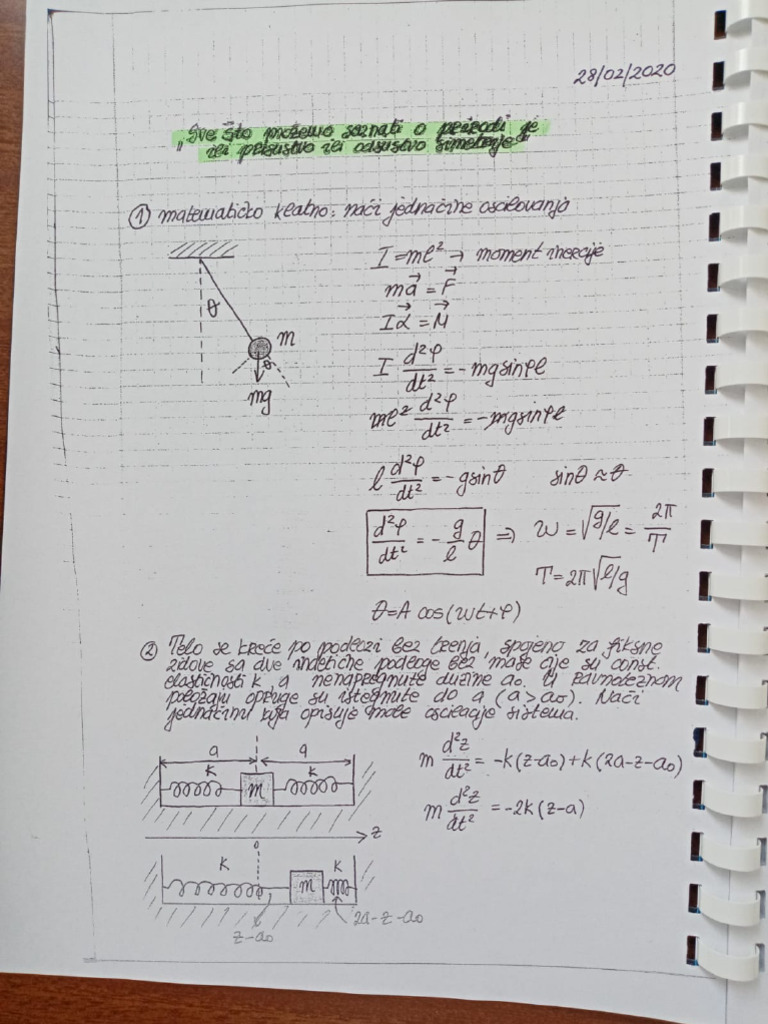 28/02/2020
"Sve što možemo saznati o prirodi je
ili prisustvo ili odsustvo simetrije"
① matematičko klatno: naći jednačine oscilovanja
I = ml² → moment inercije
ma⃗ = F⃗
Iα⃗ = M⃗
I d²φ/dt² = -mg sinφ l
ml² d²φ/dt² = -mg sinφ l
l d²φ/dt² = -g sinθ    sinθ ≈ θ
d²φ/dt² = -g/l θ ⇒ ω = √g/l = 2π/T
T = 2π√l/g
θ = A cos(ωt+φ)
θ
m
θ
mg
② Telo se kreće po podlozi bez trenja, spojeno za fiksne
zidove sa dve indetične podloge bez mase čije su const.
elastičnosti k, a nenapregnute dužine a₀. U ravnotežnom
položaju opruge su istegnute do a (a > a₀). Naći
jednačinu koja opisuje male oscilacije sistema.
a a
k m k
z
0
k m k
z-a₀ 2a-z-a₀
m d²z/dt² = -k(z-a₀)+k(2a-z-a₀)
m d²z/dt² = -2k(z-a)